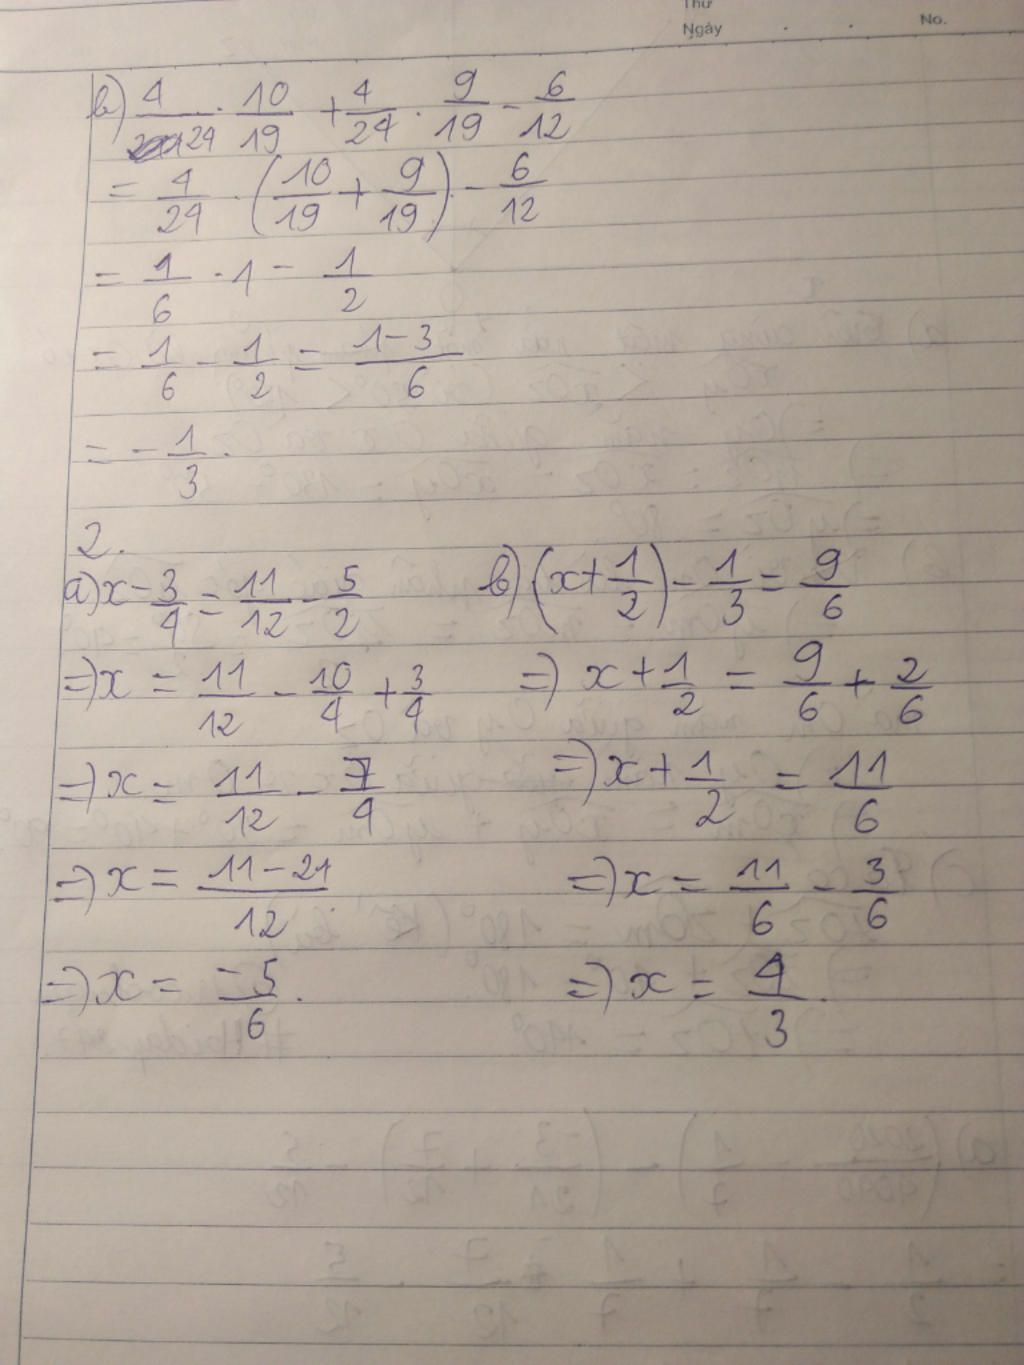 Thứ
Ngày . . No.
b) 4/24 . 10/19 + 4/24 . 9/19 - 6/12
= 4/24 . (10/19 + 9/19) - 6/12
= 1/6 . 1 - 1/2
= 1/6 - 1/2 = 1-3/6
= - 1/3 .
2.
a) x - 3/4 = 11/12 - 5/2
=> x = 11/12 - 10/4 + 3/4
=> x = 11/12 - 7/4
=> x = 11-21/12
=> x = -5/6 .
b) (x + 1/2) - 1/3 = 9/6
=> x + 1/2 = 9/6 + 2/6
=> x + 1/2 = 11/6
=> x = 11/6 - 3/6
=> x = 4/3 .